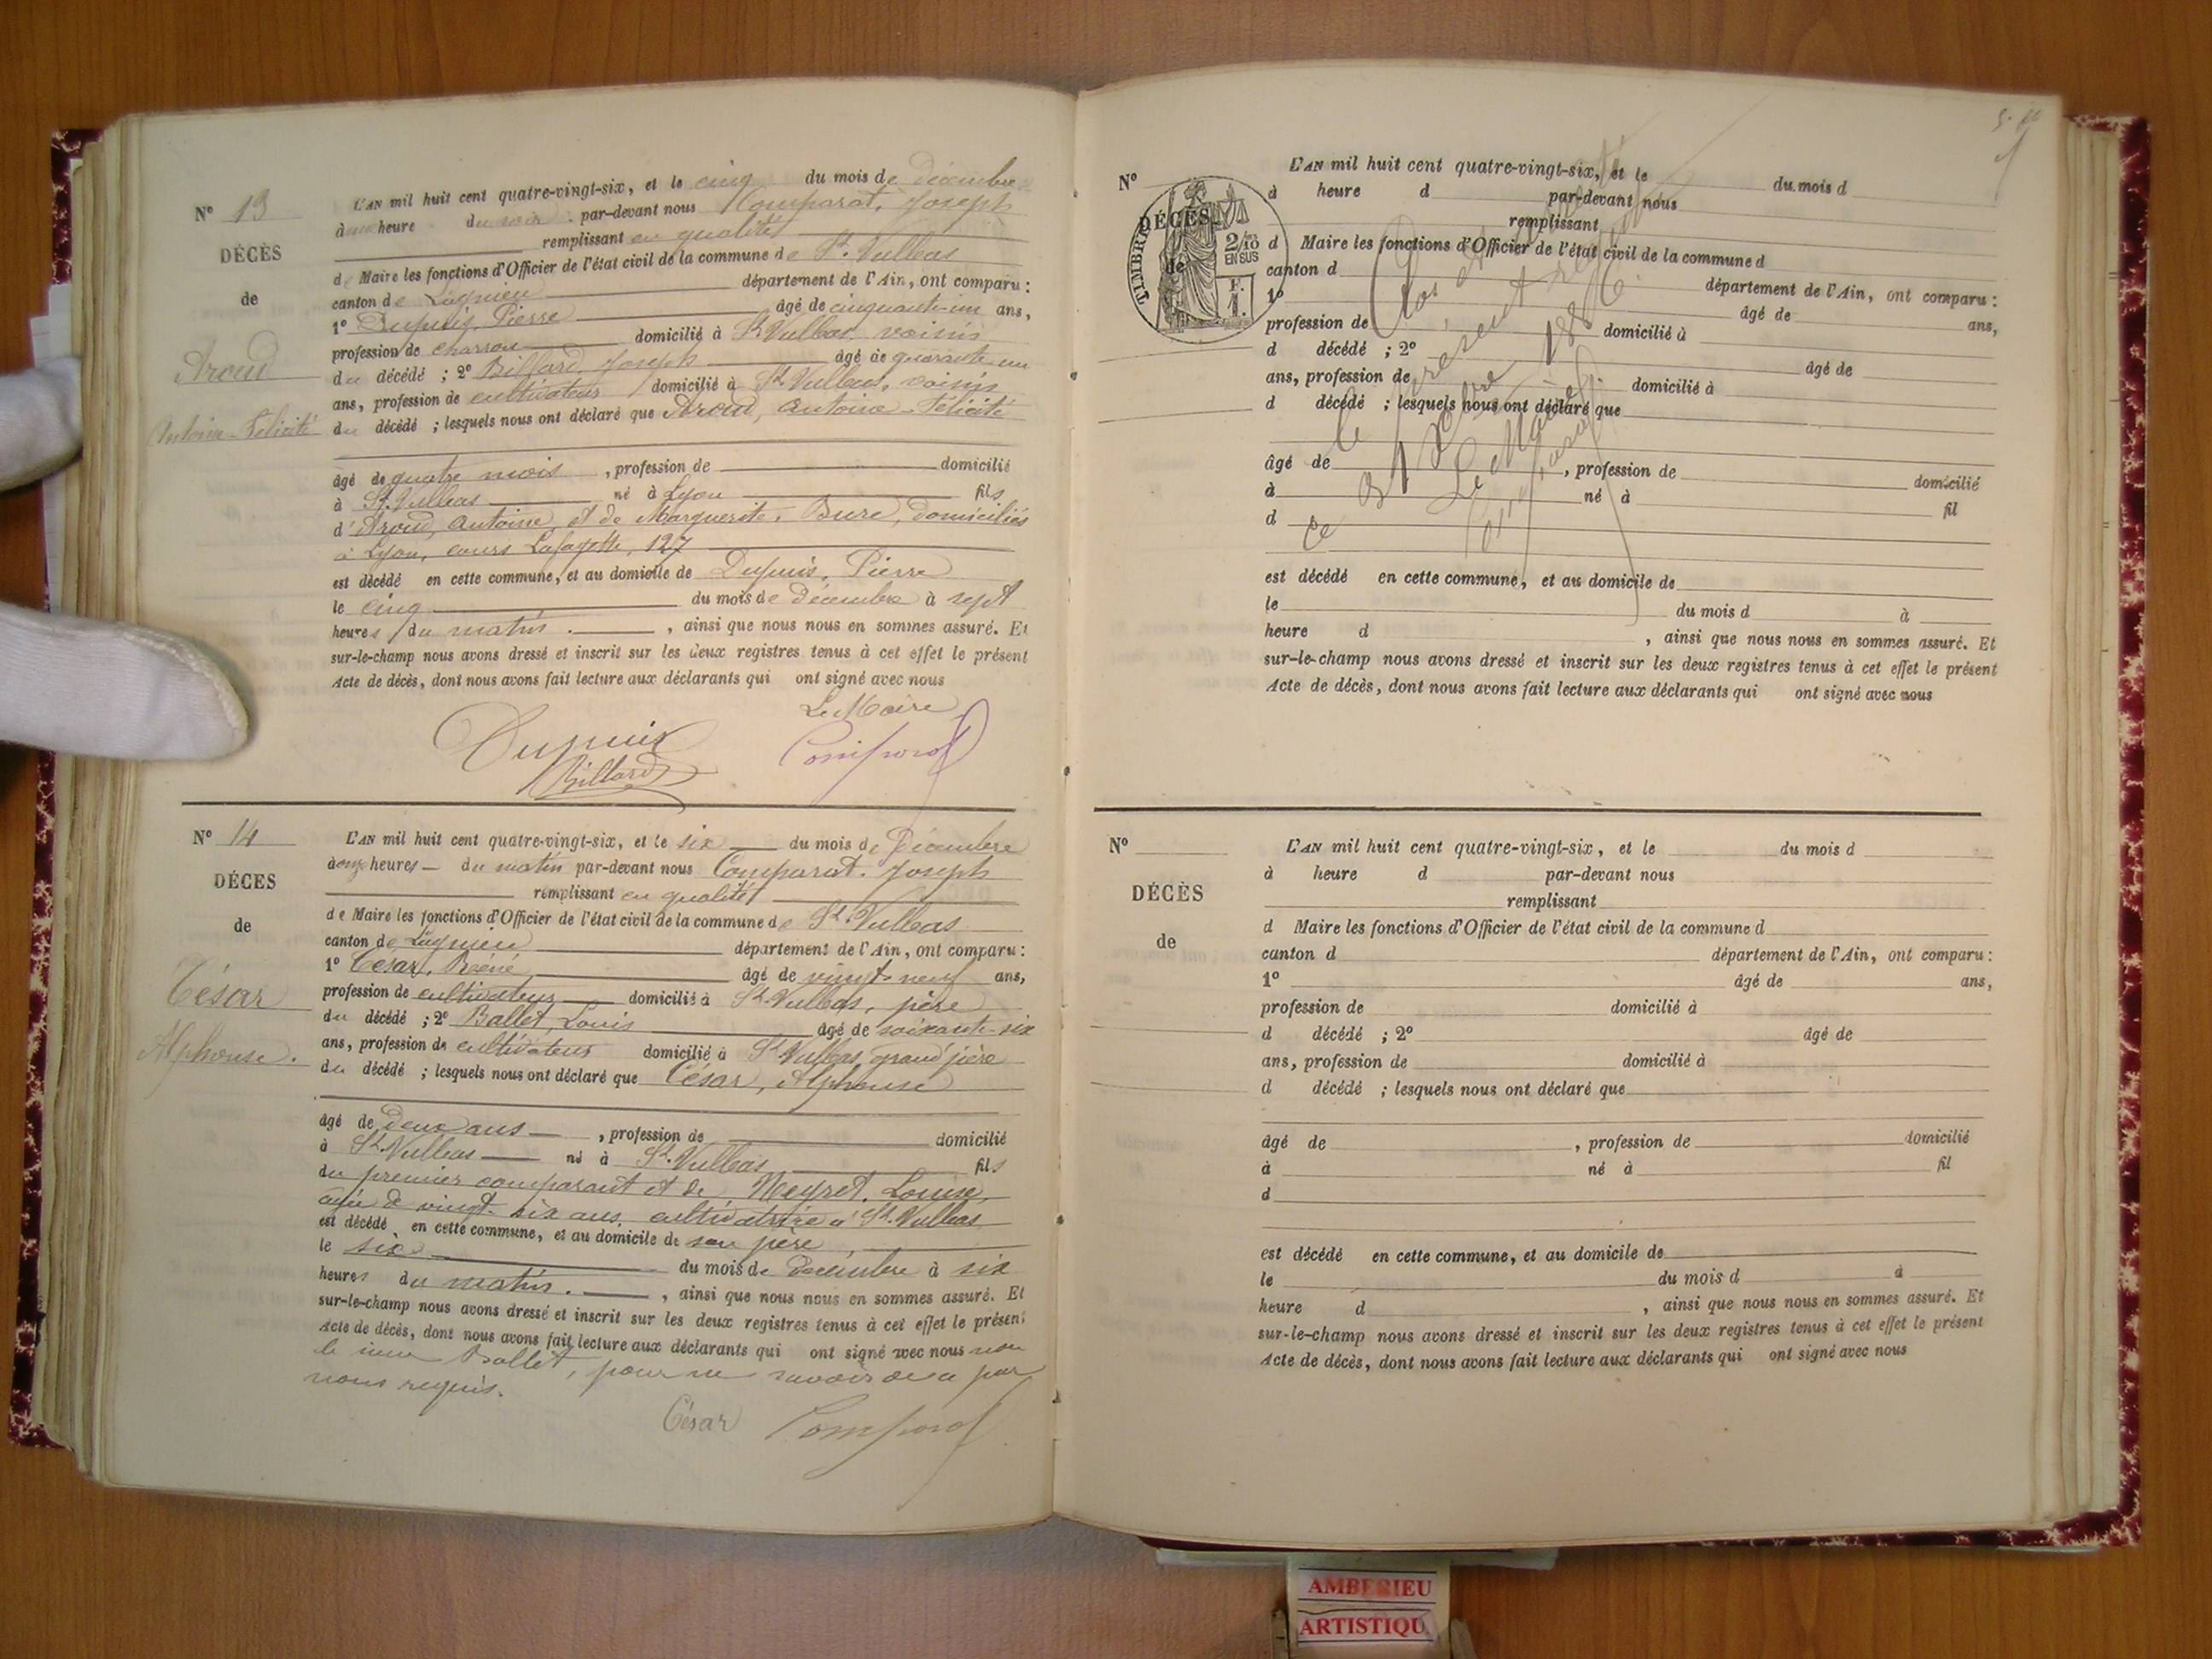 N° 13
DÉCÈS
de
Aroud
Antoine-Félicité
L'AN mil huit cent quatre-vingt-six, et le cinq du mois de Décembre
à heure du soir par-devant nous Comparat, Joseph
remplissant en qualité
de Maire les fonctions d'Officier de l'état civil de la commune de St. Vulbas
canton de Lagnieu département de l'Ain, ont comparu :
1° Dupuis, Pierre âgé de cinquante-un ans,
profession de charron domicilié à St Vulbas, voisin
du décédé ; 2° Billard, Joseph âgé de quarante-un
ans, profession de cultivateur domicilié à St Vulbas, voisin
du décédé ; lesquels nous ont déclaré que Aroud, Antoine-Félicité
âgé de quatre mois , profession de domicilié
à St. Vulbas né à Lyon fils
d'Aroud, Antoine, et de Marguerite Bure, domiciliés
à Lyon, cours Lafayette, 127
est décédé en cette commune, et au domicile de Dupuis, Pierre
le cinq du mois de Décembre à sept
heures du matin. , ainsi que nous nous en sommes assuré. Et
sur-le-champ nous avons dressé et inscrit sur les deux registres tenus à cet effet le présent
Acte de décès, dont nous avons fait lecture aux déclarants qui ont signé avec nous
Le Maire
Dupuis
Comparat
Billard
N° 14
DÉCES
de
César
Alphonse.
L'AN mil huit cent quatre-vingt-six, et le six du mois de Décembre
à onze heures du matin par-devant nous Comparat, Joseph
remplissant en qualité
de Maire les fonctions d'Officier de l'état civil de la commune de St. Vulbas
canton de Lagnieu département de l'Ain, ont comparu :
1° César, Réné âgé de vingt-neuf ans,
profession de cultivateur domicilié à St. Vulbas, père
du décédé ; 2° Ballet, Louis âgé de soixante-six
ans, profession de cultivateur domicilié à St Vulbas, grand'père
du décédé ; lesquels nous ont déclaré que César, Alphonse
âgé de deux ans , profession de domicilié
à St. Vulbas né à St. Vulbas fils
du premier comparant et de Meyret, Louise,
agée de vingt-six ans, cultivatrice à St. Vulbas
est décédé en cette commune, et au domicile de son père,
le six du mois de Décembre à six
heures du matin. , ainsi que nous nous en sommes assuré. Et
sur-le-champ nous avons dressé et inscrit sur les deux registres tenus à cet effet le présent
Acte de décès, dont nous avons fait lecture aux déclarants qui ont signé avec nous non
le sieur Ballet, pour ne savoir de ce par
nous requis.
César Comparat
N°
DÉCÈS
de
TIMBRE
2/10
EN SUS
F.
1.
L'AN mil huit cent quatre-vingt-six, et le du mois d
à heure d par-devant nous
remplissant
d Maire les fonctions d'Officier de l'état civil de la commune d
canton d département de l'Ain, ont comparu :
1° âgé de ans,
profession de domicilié à
d décédé ; 2° âgé de
ans, profession de domicilié à
d décédé ; lesquels nous ont déclaré que
âgé de , profession de domicilié
à né à fil
d
est décédé en cette commune, et au domicile de
le du mois d à
heure d , ainsi que nous nous en sommes assuré. Et
sur-le-champ nous avons dressé et inscrit sur les deux registres tenus à cet effet le présent
Acte de décès, dont nous avons fait lecture aux déclarants qui ont signé avec nous
Clos et arrêté
le présent registre
ce 31 Xbre 1886.
Le Maire
Comparat
N°
DÉCÈS
de
L'AN mil huit cent quatre-vingt-six, et le du mois d
à heure d par-devant nous
remplissant
d Maire les fonctions d'Officier de l'état civil de la commune d
canton d département de l'Ain, ont comparu :
1° âgé de ans,
profession de domicilié à
d décédé ; 2° âgé de
ans, profession de domicilié à
d décédé ; lesquels nous ont déclaré que
âgé de , profession de domicilié
à né à fil
d
est décédé en cette commune, et au domicile de
le du mois d à
heure d , ainsi que nous nous en sommes assuré. Et
sur-le-champ nous avons dressé et inscrit sur les deux registres tenus à cet effet le présent
Acte de décès, dont nous avons fait lecture aux déclarants qui ont signé avec nous
AMBERIEU
ARTISTIQU